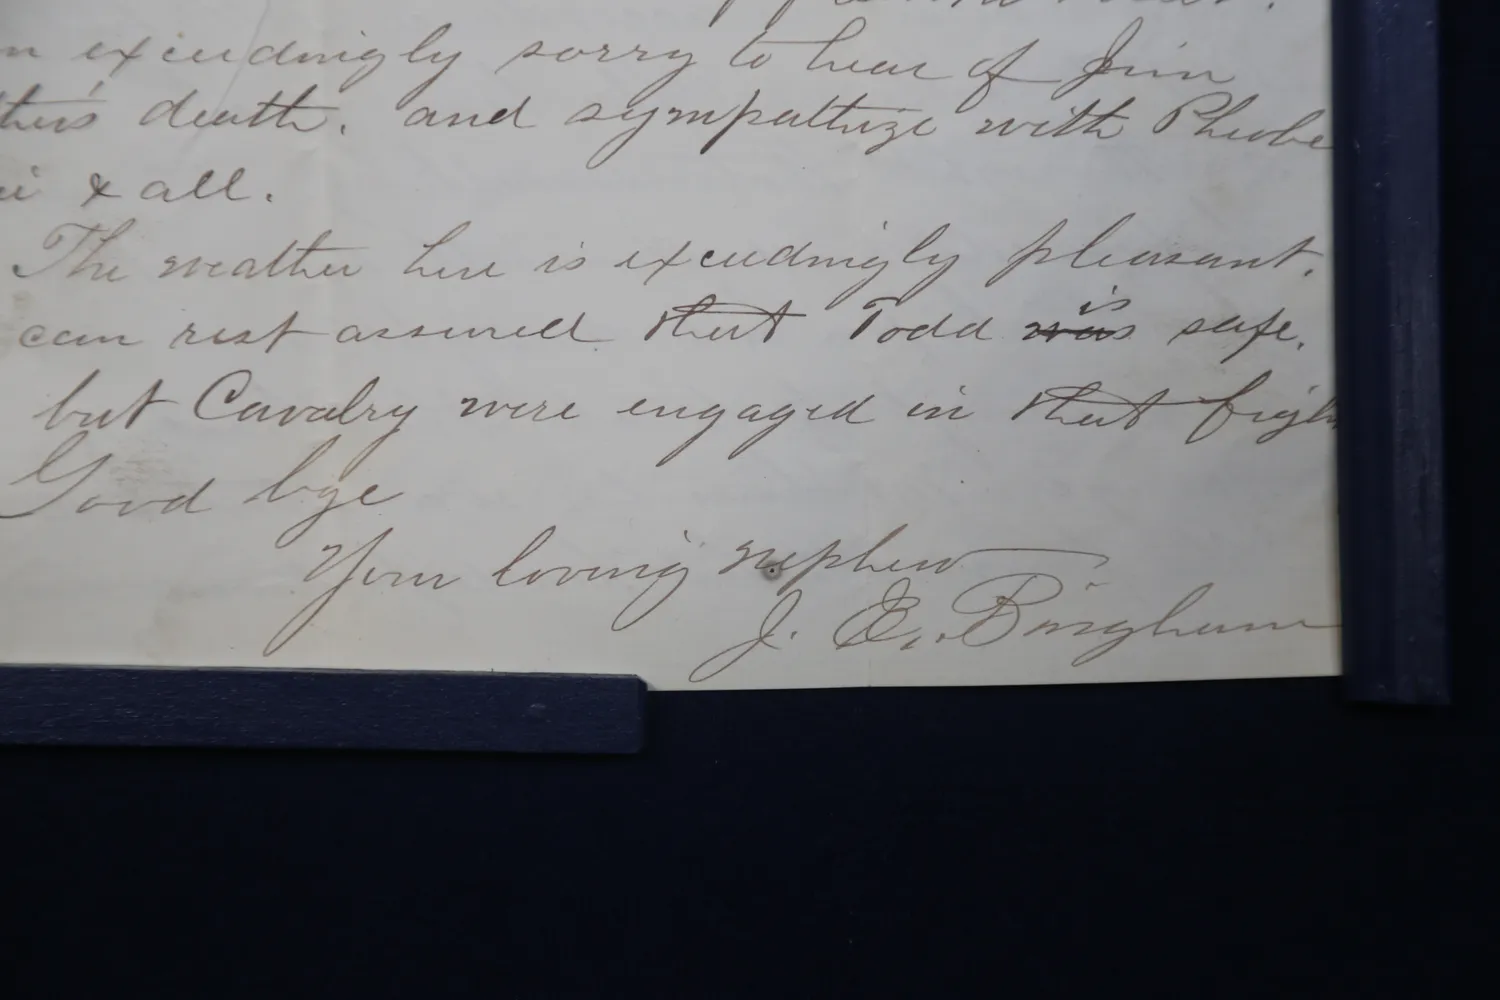 exceedingly sorry to hear of Jim
death. and sympathize with Phoebe
& all.
The weather here is exceedingly pleasant.
can rest assured that Todd was is safe.
but Cavalry were engaged in that fight
Good bye
Your loving nephew
J. E. Bingham